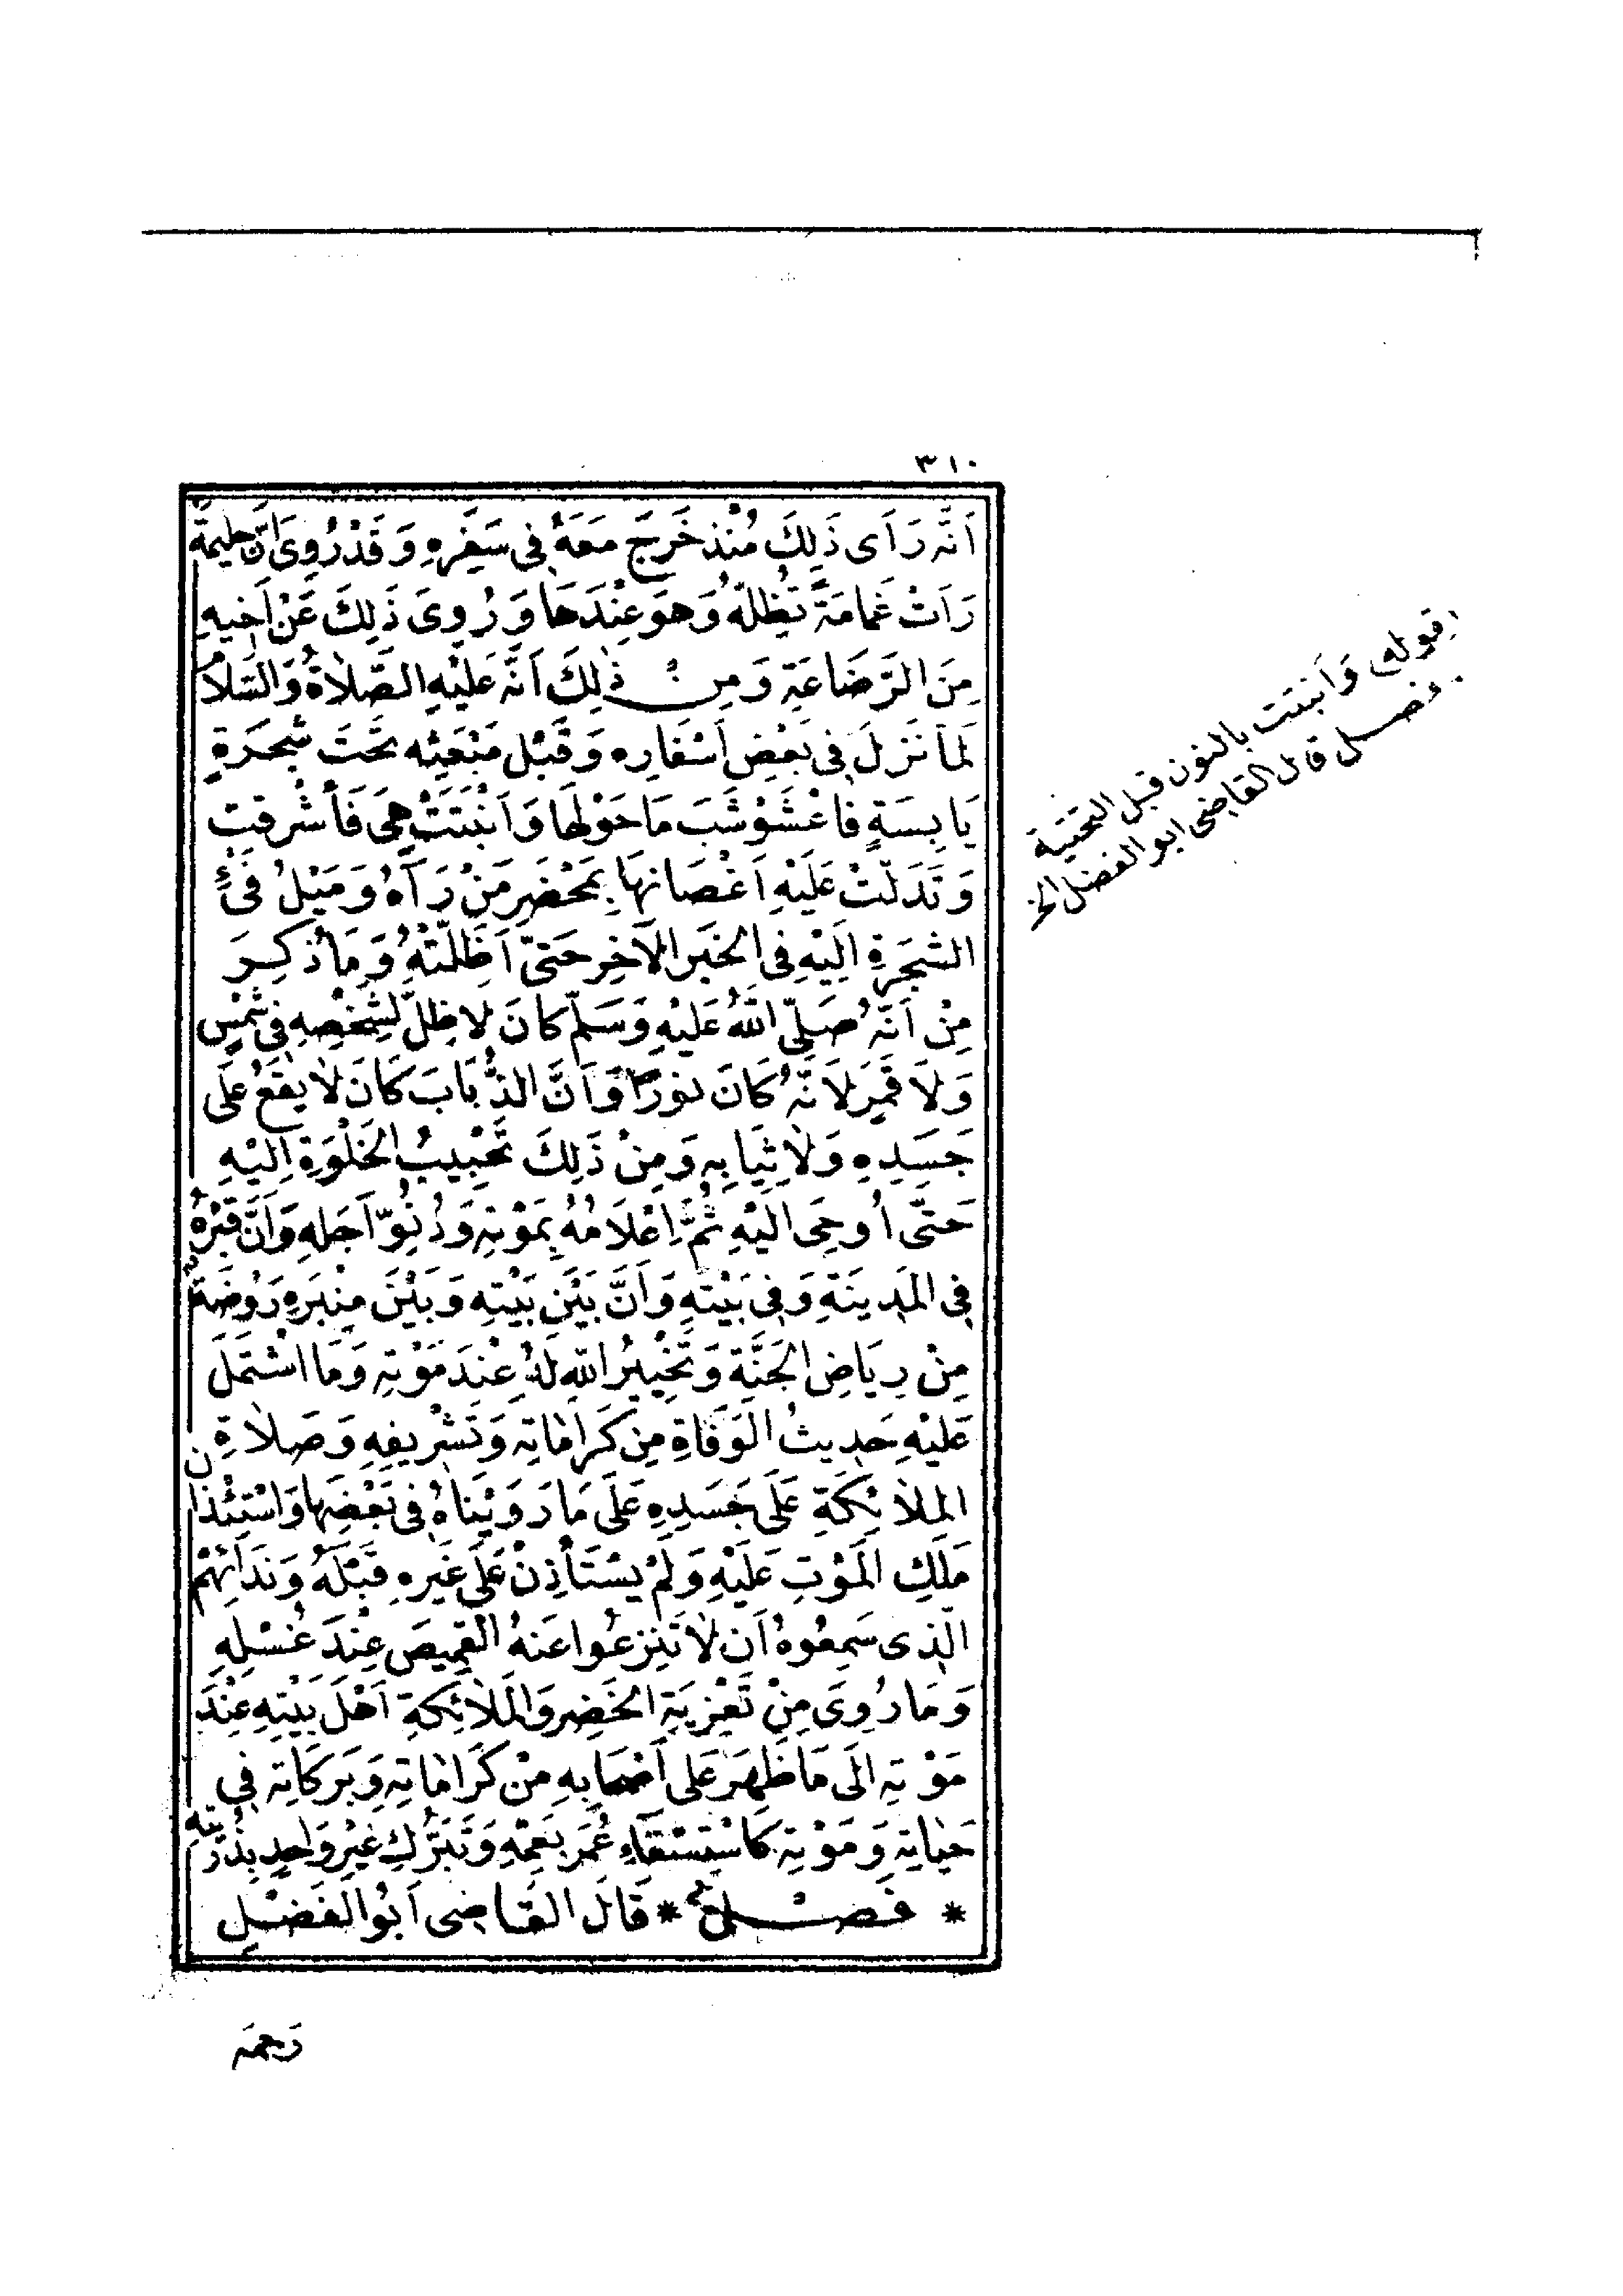 ٣١٠
اَنَّهُ رَاَى ذَلِكَ مُنْذُ خَرَجَ مَعَهُ فِى سَفَرِهِ وَقَدْ رُوِىَ اَنَّ حَلِيمَةَ
رَاَتْ غَمَامَةً تُظِلُّهُ وَهُوَ عِنْدَهَا وَرُوِىَ ذَلِكَ عَنْ اَخِيهِ
مِنَ الرَّضَاعَةِ وَمِنْ ذٰلِكَ اَنَّهُ عَلَيْهِ الصَّلاٰةُ وَالسَّلاٰمُ
لَمَّا نَزَلَ فِى بَعْضِ اَسْفَارِهِ وَقَبْلَ مَبْعَثِهِ تَحْتَ شَجَرَةٍ
يَابِسَةٍ فَاعْشَوْشَبَ مَا حَوْلَهَا وَاَنْبَتَتْ هِىَ فَأَشْرَقَتْ
وَتَدَلَّتْ عَلَيْهِ اَغْصَانُهَا بِمَحْضَرِ مَنْ رَآهُ وَمَيْلُ فَىْءِ
الشَّجَرَةِ اِلَيْهِ فِى الْخَبَرِ الْآخِرِ حَتَّى اَظَلَّتْهُ وَمَا ذُكِرَ
مِنْ اَنَّهُ صَلَّى اللّٰهُ عَلَيْهِ وَسَلَّمَ كَانَ لاَ ظِلَّ لِشَخْصِهِ فِى شَمْسٍ
وَلاَ قَمَرٍ لِاَنَّهُ كَانَ نُورًا وَاَنَّ الذُّبَابَ كَانَ لاٰ يَقَعُ عَلَى
جَسَدِهِ وَلاٰ ثِيَابِهِ وَمِنْ ذَلِكَ تَحْبِيبُ الْخَلْوَةِ اِلَيْهِ
حَتَّى اُوحِىَ اِلَيْهِ ثُمَّ اِعْلاَمُهُ بِمَوْتِهِ وَدُنُوِّ اَجَلِهِ وَاَنَّ قَبْرَهُ
فِى الْمَدِينَةِ وَفِى بَيْتِهِ وَاَنَّ بَيْنَ بَيْتِهِ وَبَيْنَ مِنْبَرِهِ رَوْضَةً
مِنْ رِيَاضِ الْجَنَّةِ وَتَخْيِيرُ اللّٰهِ لَهُ عِنْدَ مَوْتِهِ وَمَا اشْتَمَلَ
عَلَيْهِ حَدِيثُ الْوَفَاةِ مِنْ كَرَامَاتِهِ وَتَشْرِيفِهِ وَصَلاٰةِ
الْمَلاٰئِكَةِ عَلَى جَسَدِهِ عَلَى مَا رَوَيْنَاهُ فِى بَعْضِهَا وَاسْتِئْذَانِ
مَلَكِ الْمَوْتِ عَلَيْهِ وَلَمْ يَسْتَأْذِنْ عَلَى غَيْرِهِ قَبْلَهُ وَنَدَائِهِمُ
الَّذِى سَمِعُوهُ اَنْ لاٰ تَنْزِعُوا عَنْهُ الْقَمِيصَ عِنْدَ غُسْلِهِ
وَمَا رُوِىَ مِنْ تَعْزِيَةِ الْخَضِرِ وَالْمَلاٰئِكَةِ اَهْلَ بَيْتِهِ عِنْدَ
مَوْتِهِ اِلَى مَا ظَهَرَ عَلَى اَصْحَابِهِ مِنْ كَرَامَاتِهِ وَبَرَكَاتِهِ فِى
حَيَاتِهِ وَمَوْتِهِ كَاسْتِسْقَاءِ عُمَرَ بِعَمِّهِ وَتَبَرُّكِ غَيْرِ وَاحِدٍ بِذُرِّيَّتِهِ
* فَصْلٌ * قَالَ الْقَاضِى اَبُو الْفَضْلِ
رَحِمَهُ
قوله وَاَنبتت بالنون قبل التحتية
فصل قال القاضى ابو الفضل الخ